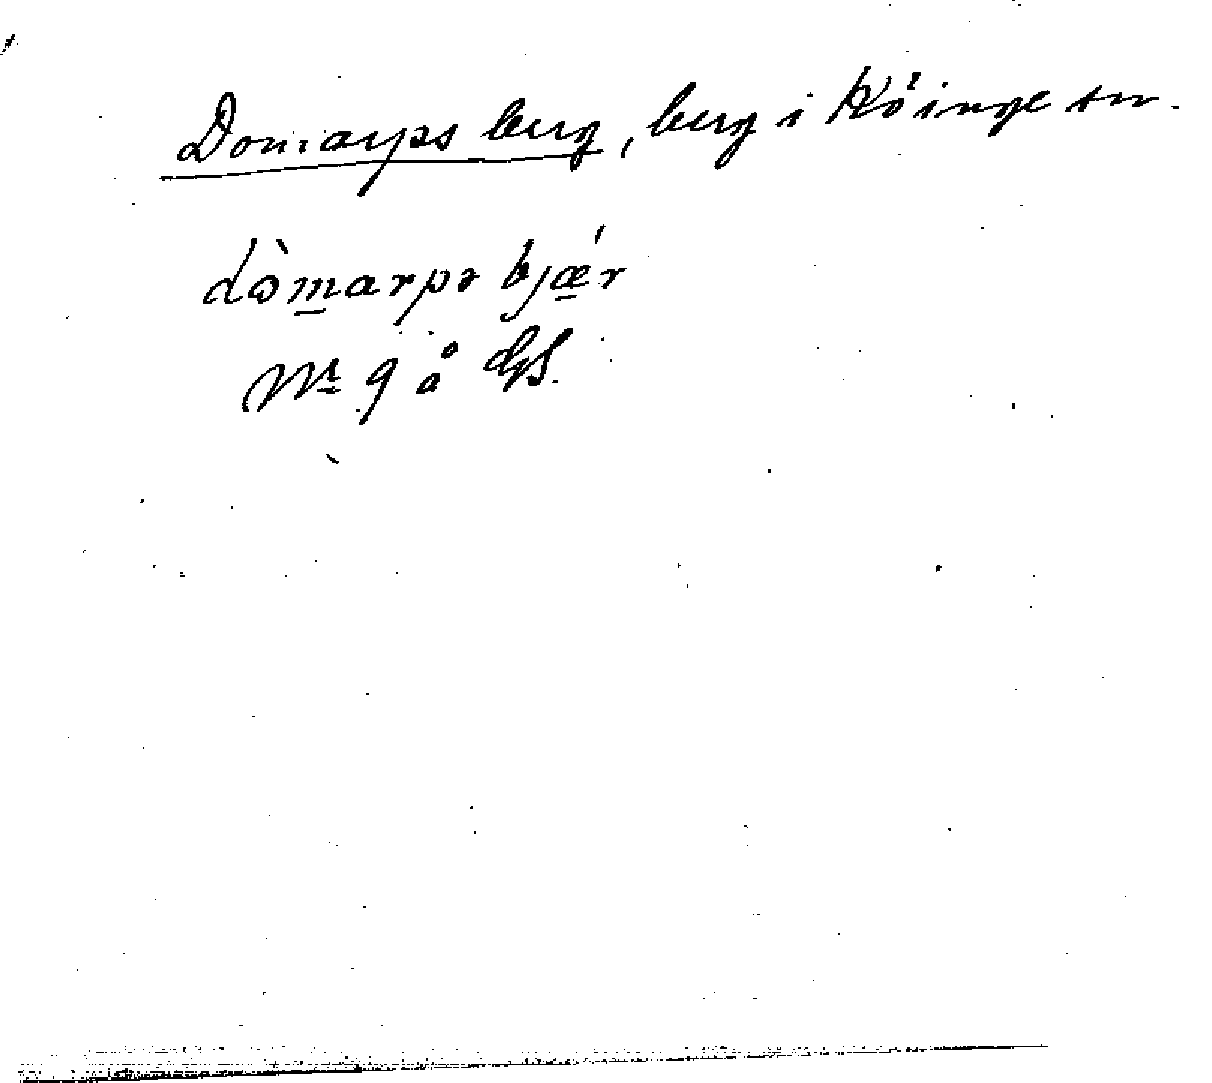 Domarps berg, berg i Köinge sn.
dòmarpə bjǽr
Nr 9 å GS.